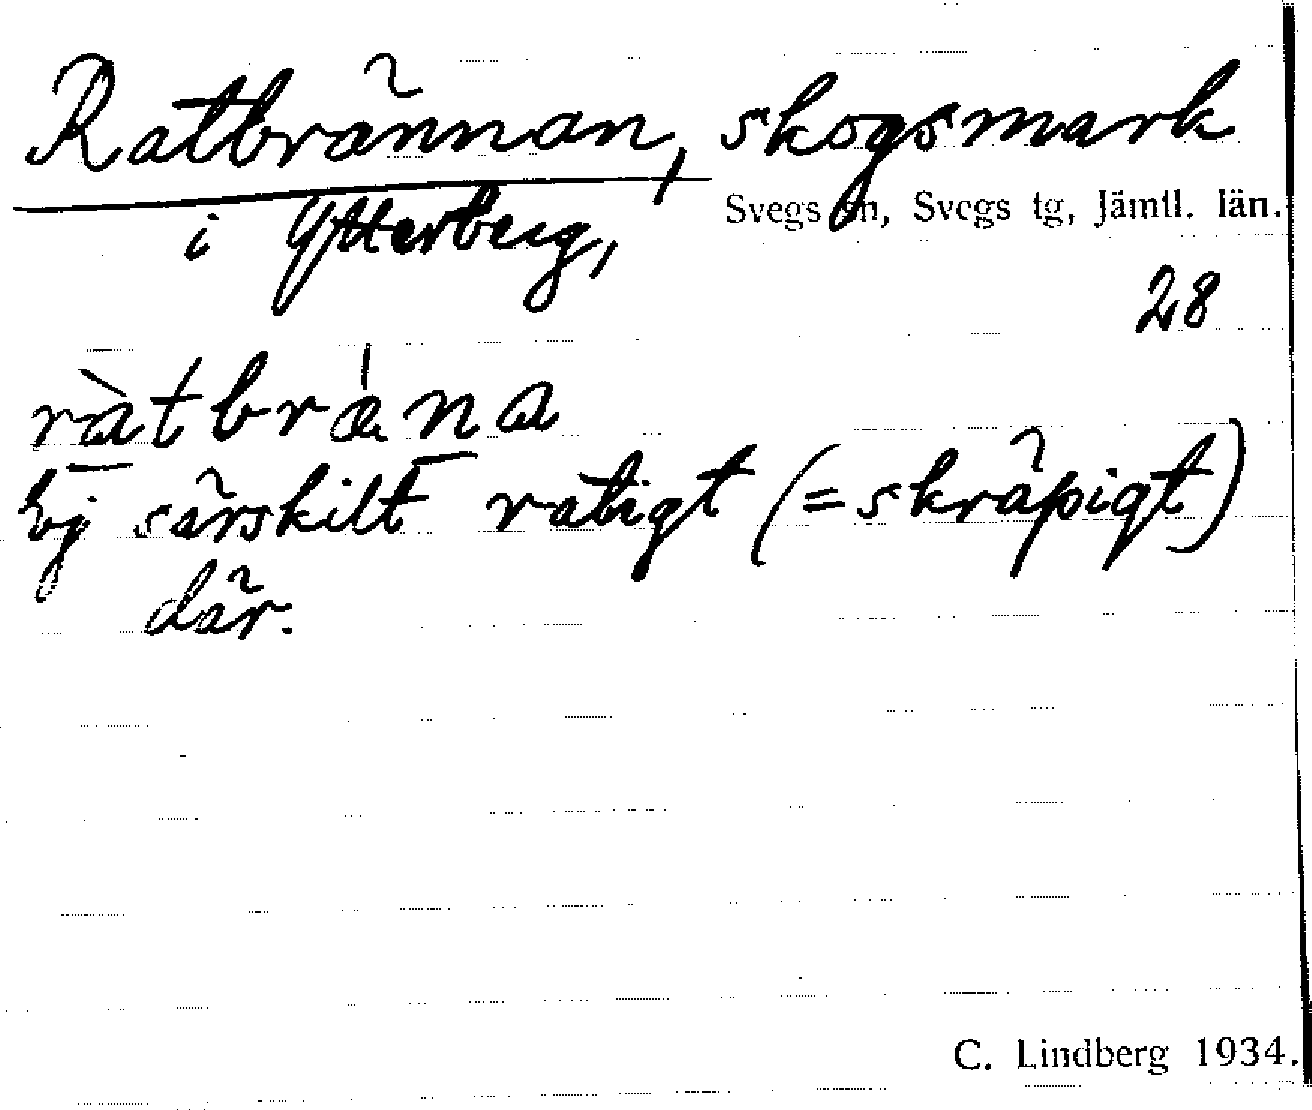 Ratbrännan, skogsmark
i Ytterberg,
Svegs sn, Svegs tg, Jämtl. län.
28
ràt brǽna
Ej särskilt ratigt (= skräpigt)
där.
C. Lindberg 1934.